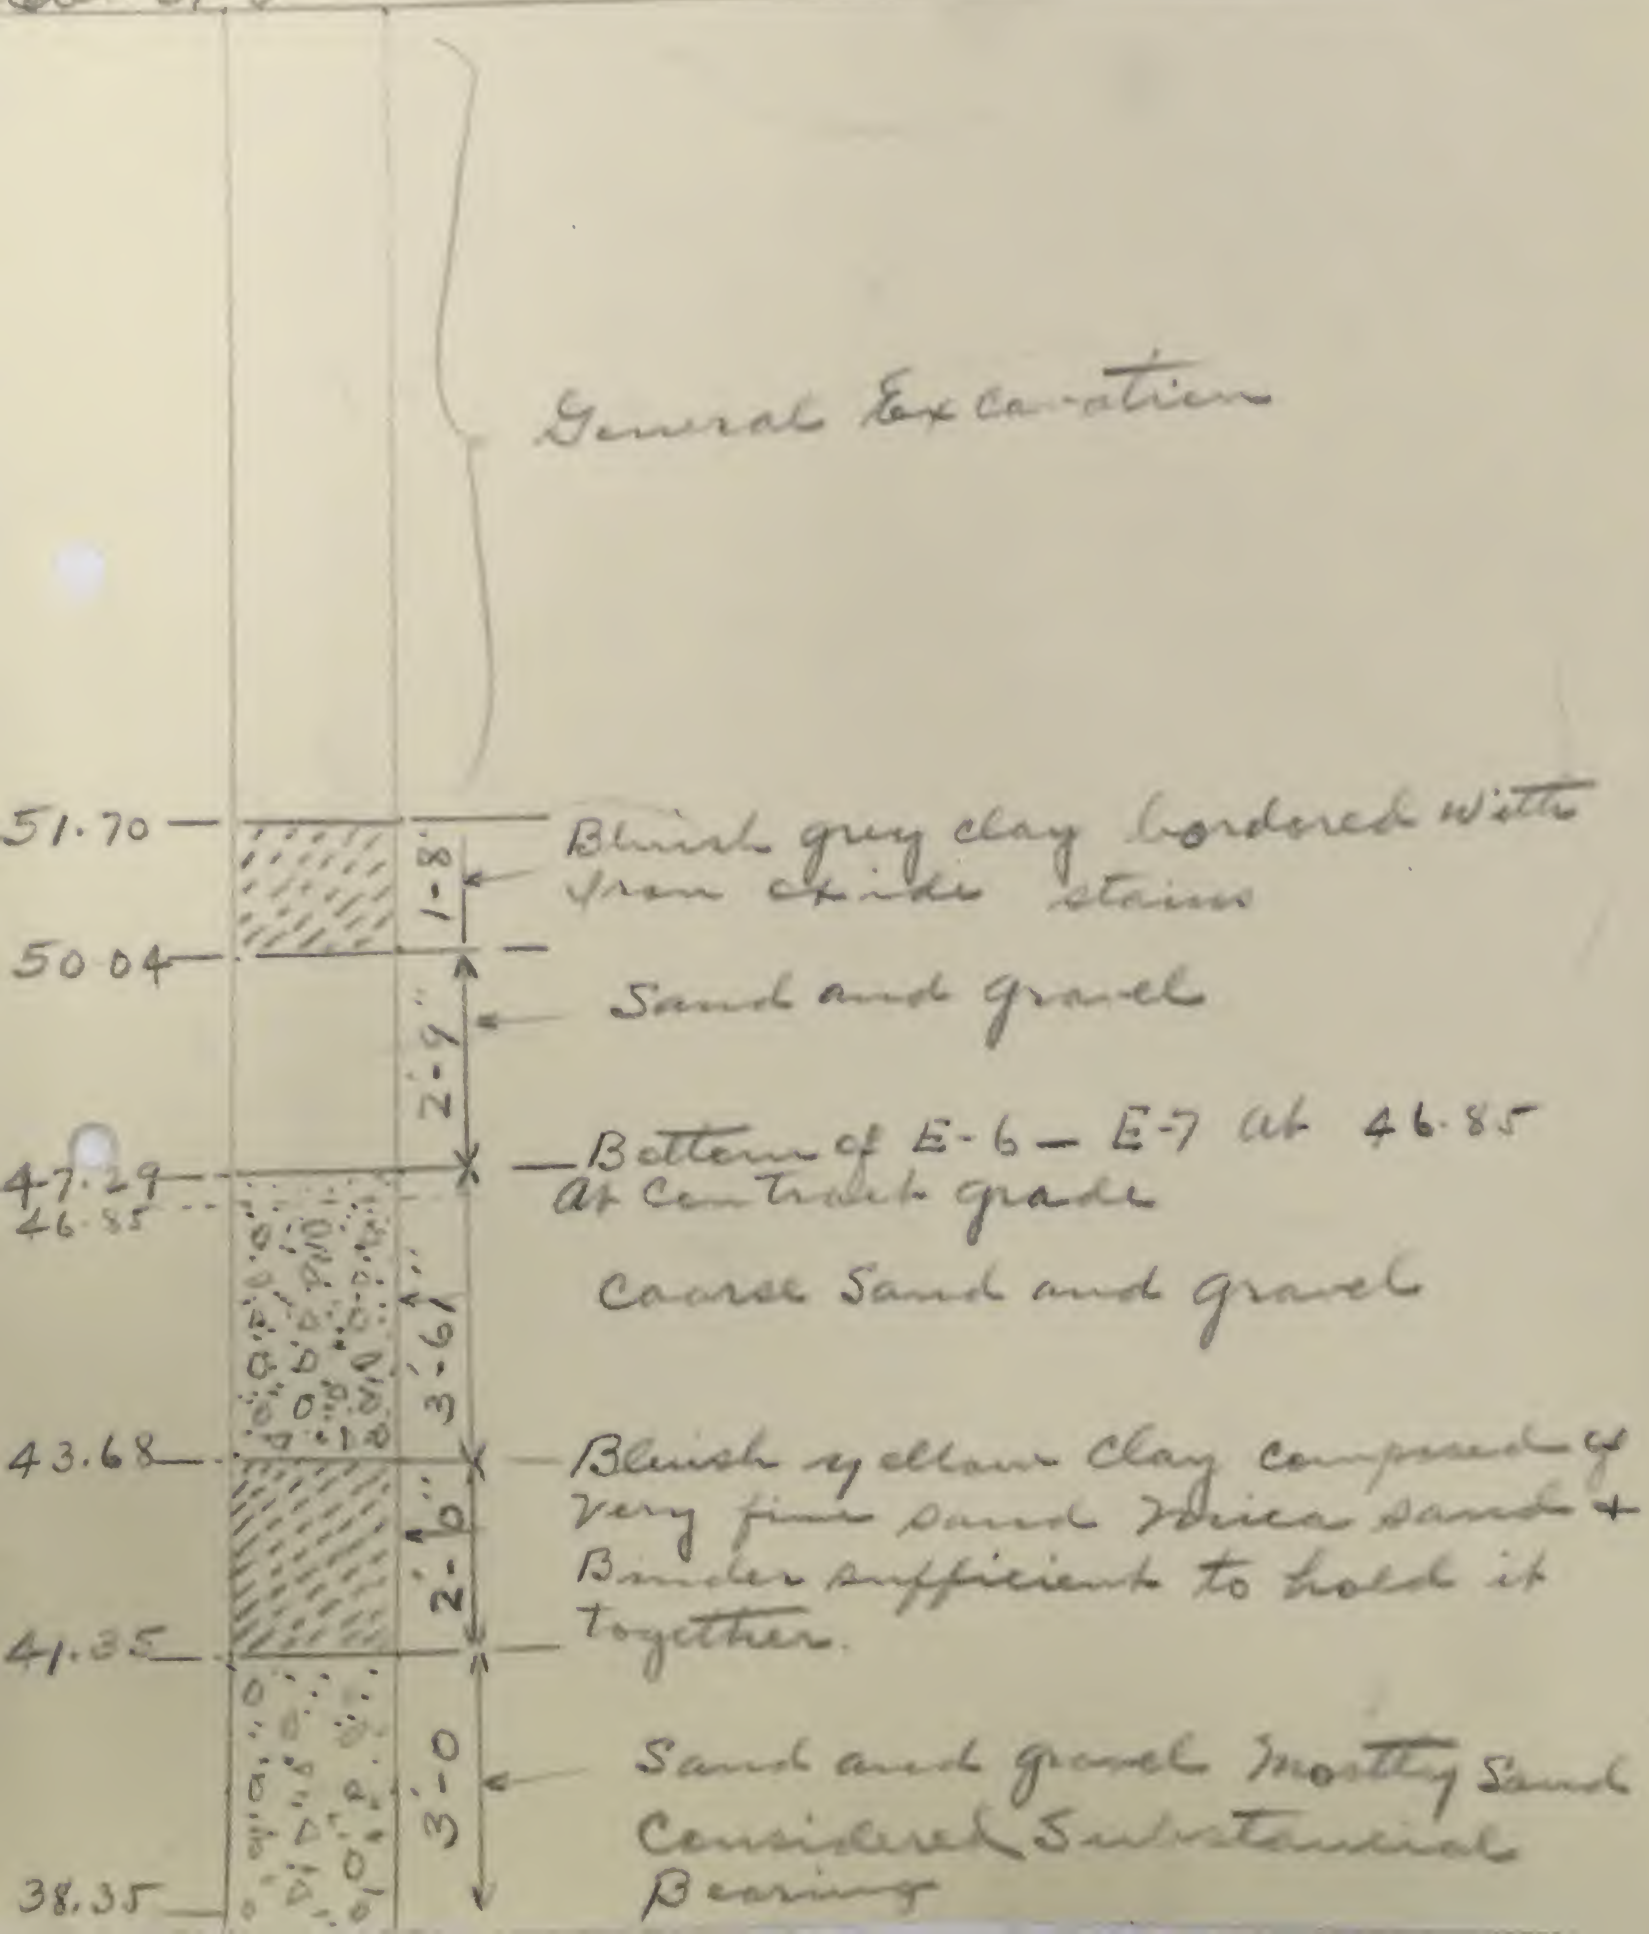 General Excavation
51.70
1'-8"
Bluish grey clay bordered with
Iron oxide stains
50 04
2'-9"
Sand and gravel
47.29
Bottom of E-6 — E-7 at 46.85
46.85
At Contract grade
3'-6"
Coarse Sand and gravel
43.68
Bluish yellow Clay composed of
Very fine sand Mica sand +
2'-6"
Binder sufficient to hold it
together.
41.35
3'-0
Sand and gravel Mostly Sand
Considered Substancial
Bearing
38.35